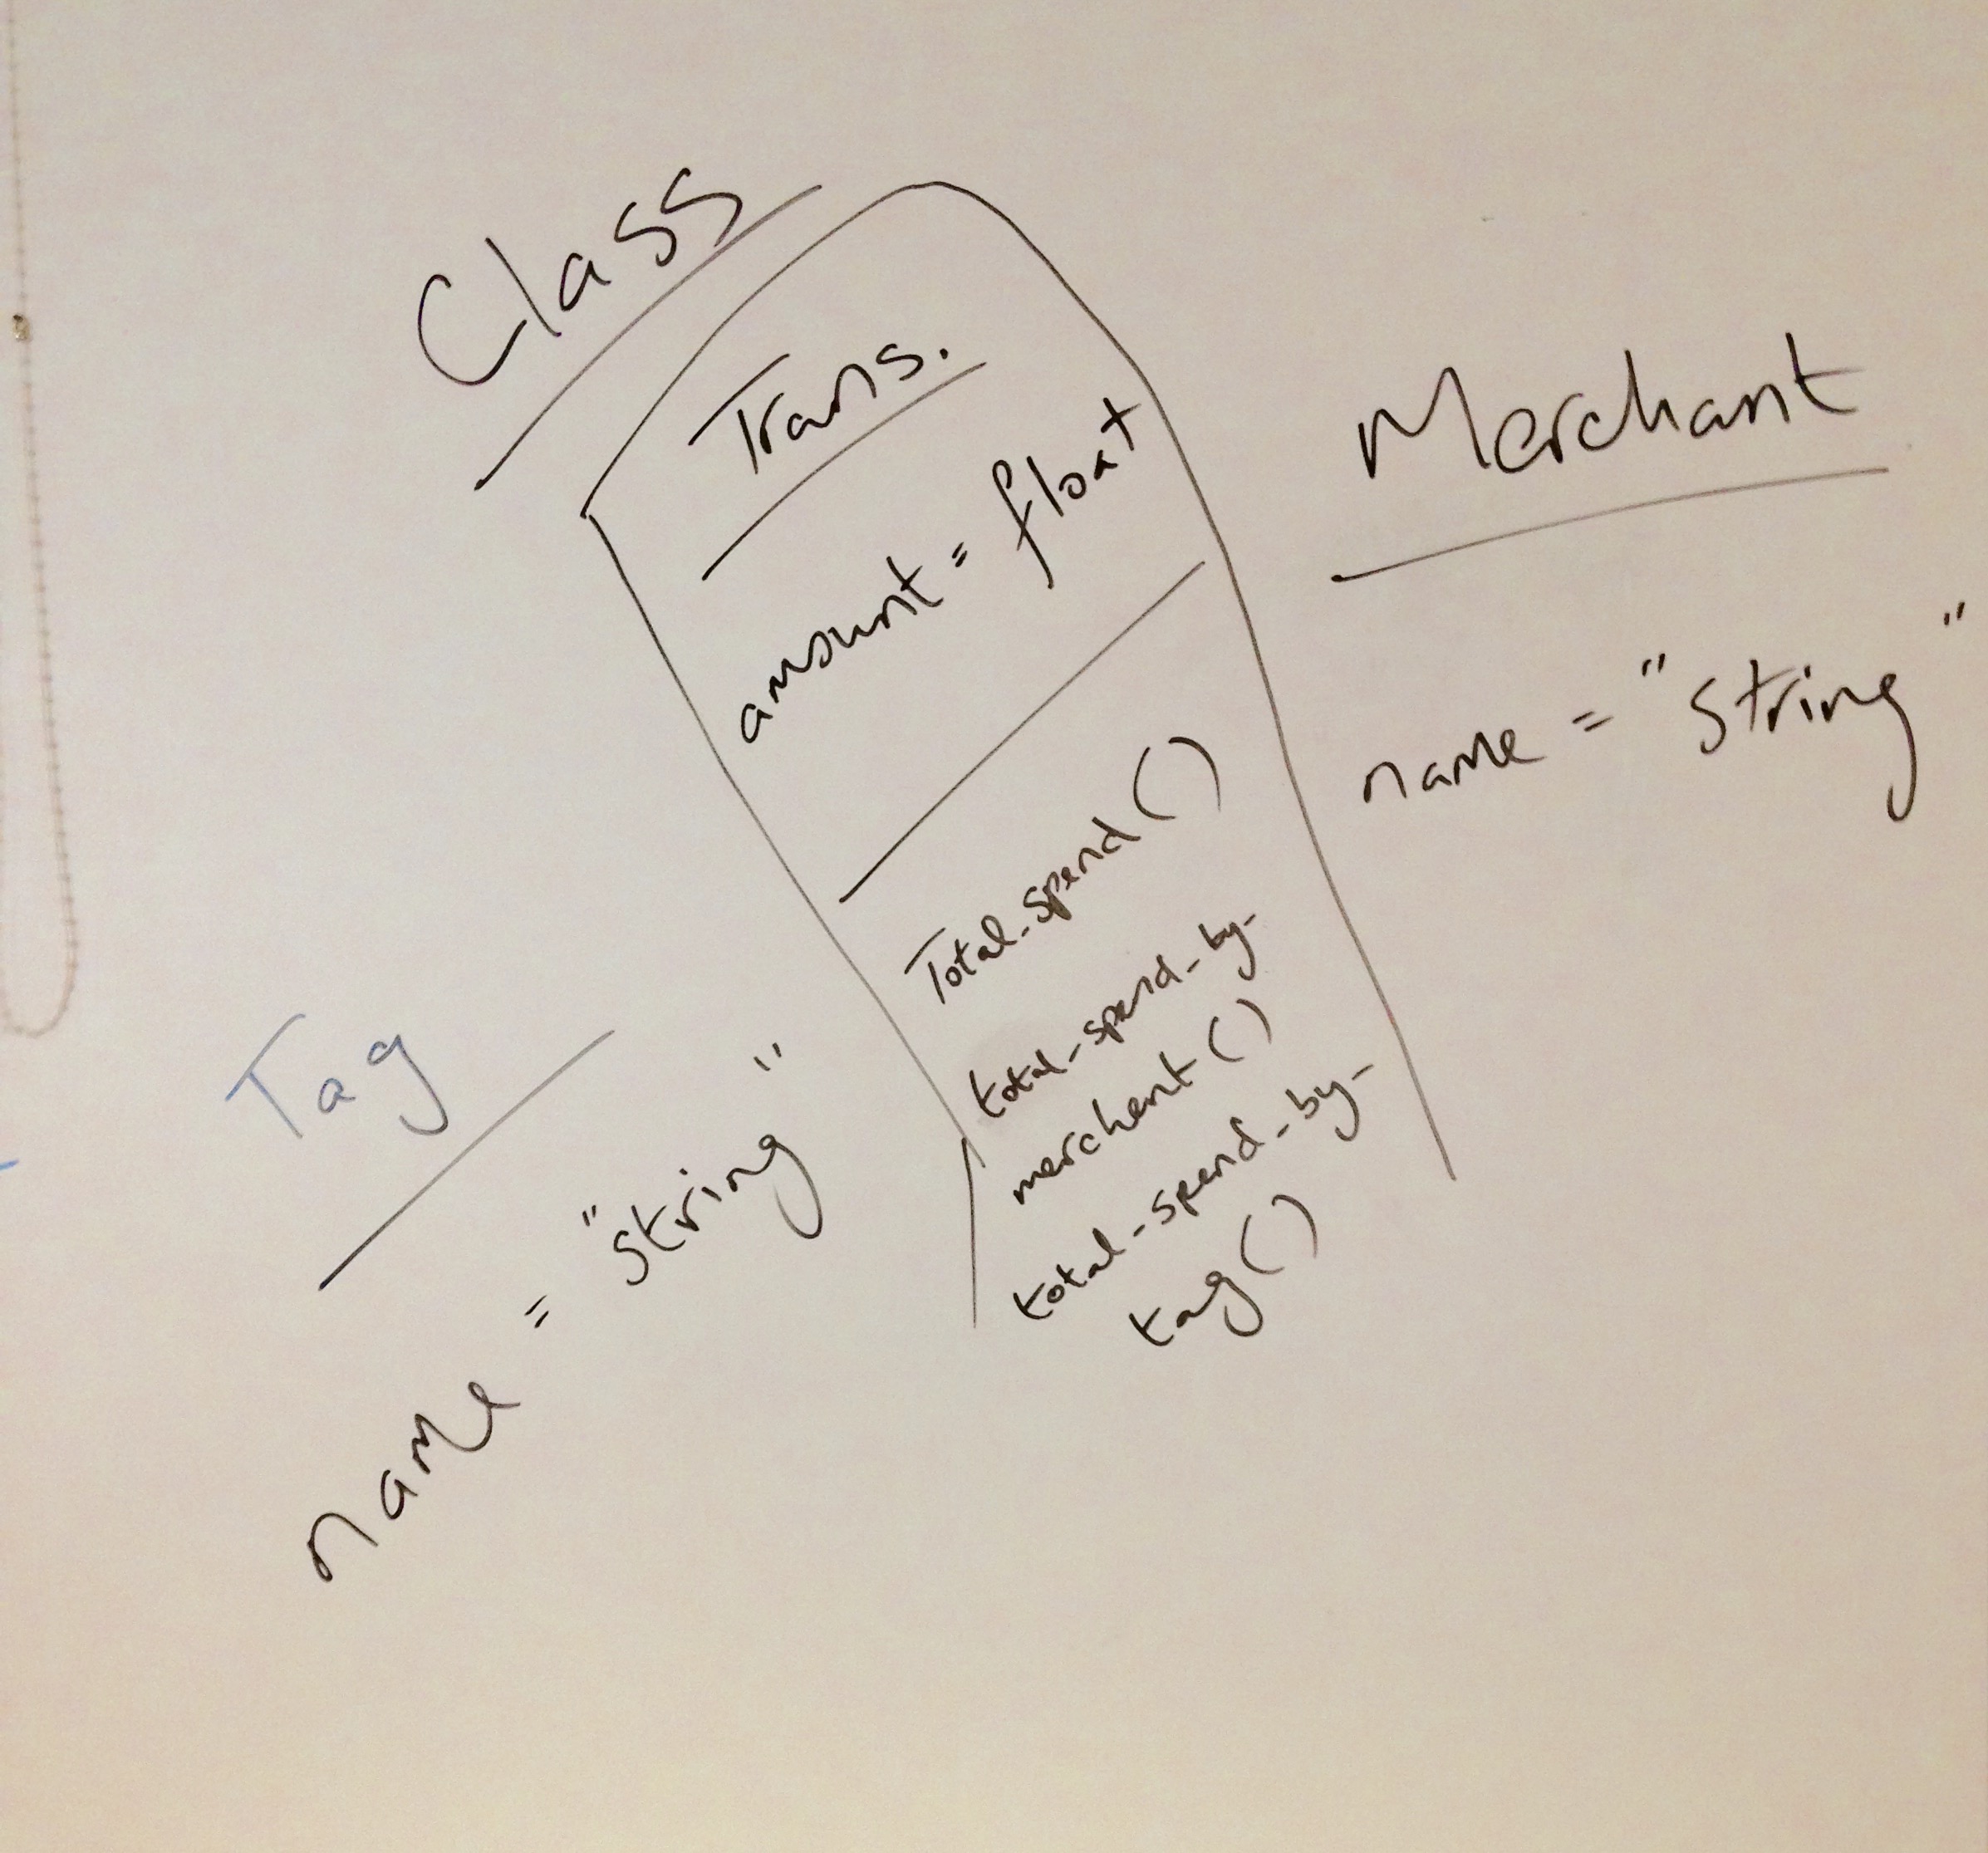 Class
Trans.
amount = float
Total_spend()
total_spend_by_
merchant()
total_spend_by_
tag()
Merchant
name = "string"
Tag
name = "string"